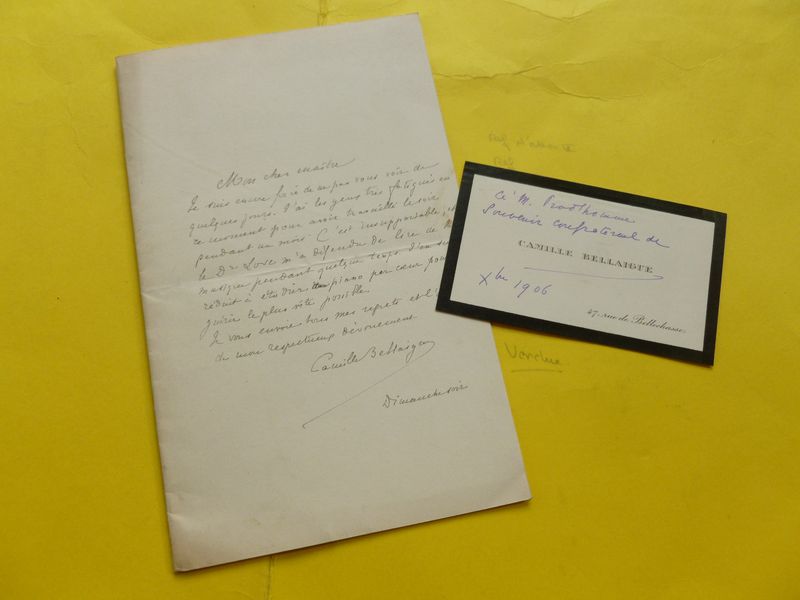 Mon cher maître
Je suis navré de ne pas vous voir de
quelques jours. J'ai les yeux très fatigués en
ce moment pour avoir travaillé le soir
pendant un mois. C'est insupportable, et
le Dr m'a défendu de lire de la
musique pendant quelque temps. J'en suis
réduit à étudier piano par cœur pour
guérir le plus vite possible.
Je vous envoie tous mes regrets et l'
de mon respectueux dévouement
Camille Bellaigue
Dimanche soir
à M. Prod'homme
Souvenir confraternel de
CAMILLE BELLAIGUE
Xbre 1906
47, rue de Bellechasse
Vendue